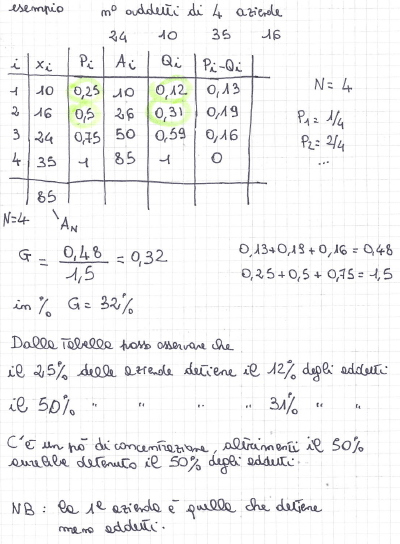 esempio n° addetti di 4 aziende
24 10 35 16
i xi Pi Ai Qi Pi-Qi
1 10 0,25 10 0,12 0,13
2 16 0,5 26 0,31 0,19
3 24 0,75 50 0,59 0,16
4 35 1 85 1 0
85
N = 4
P1 = 1/4
P2 = 2/4
...
N=4 AN
G = 0,48 / 1,5 = 0,32
0,13+0,19+0,16 = 0,48
0,25+0,5+0,75 = 1,5
in % G = 32%
Dalla Tabella posso osservare che
il 25% delle aziende detiene il 12% degli addetti
il 50% " " " " 31% " "
C'è un pò di concentrazione, altrimenti il 50%
avrebbe detenuto il 50% degli addetti.
NB: la 1e azienda è quella che detiene
meno addetti.